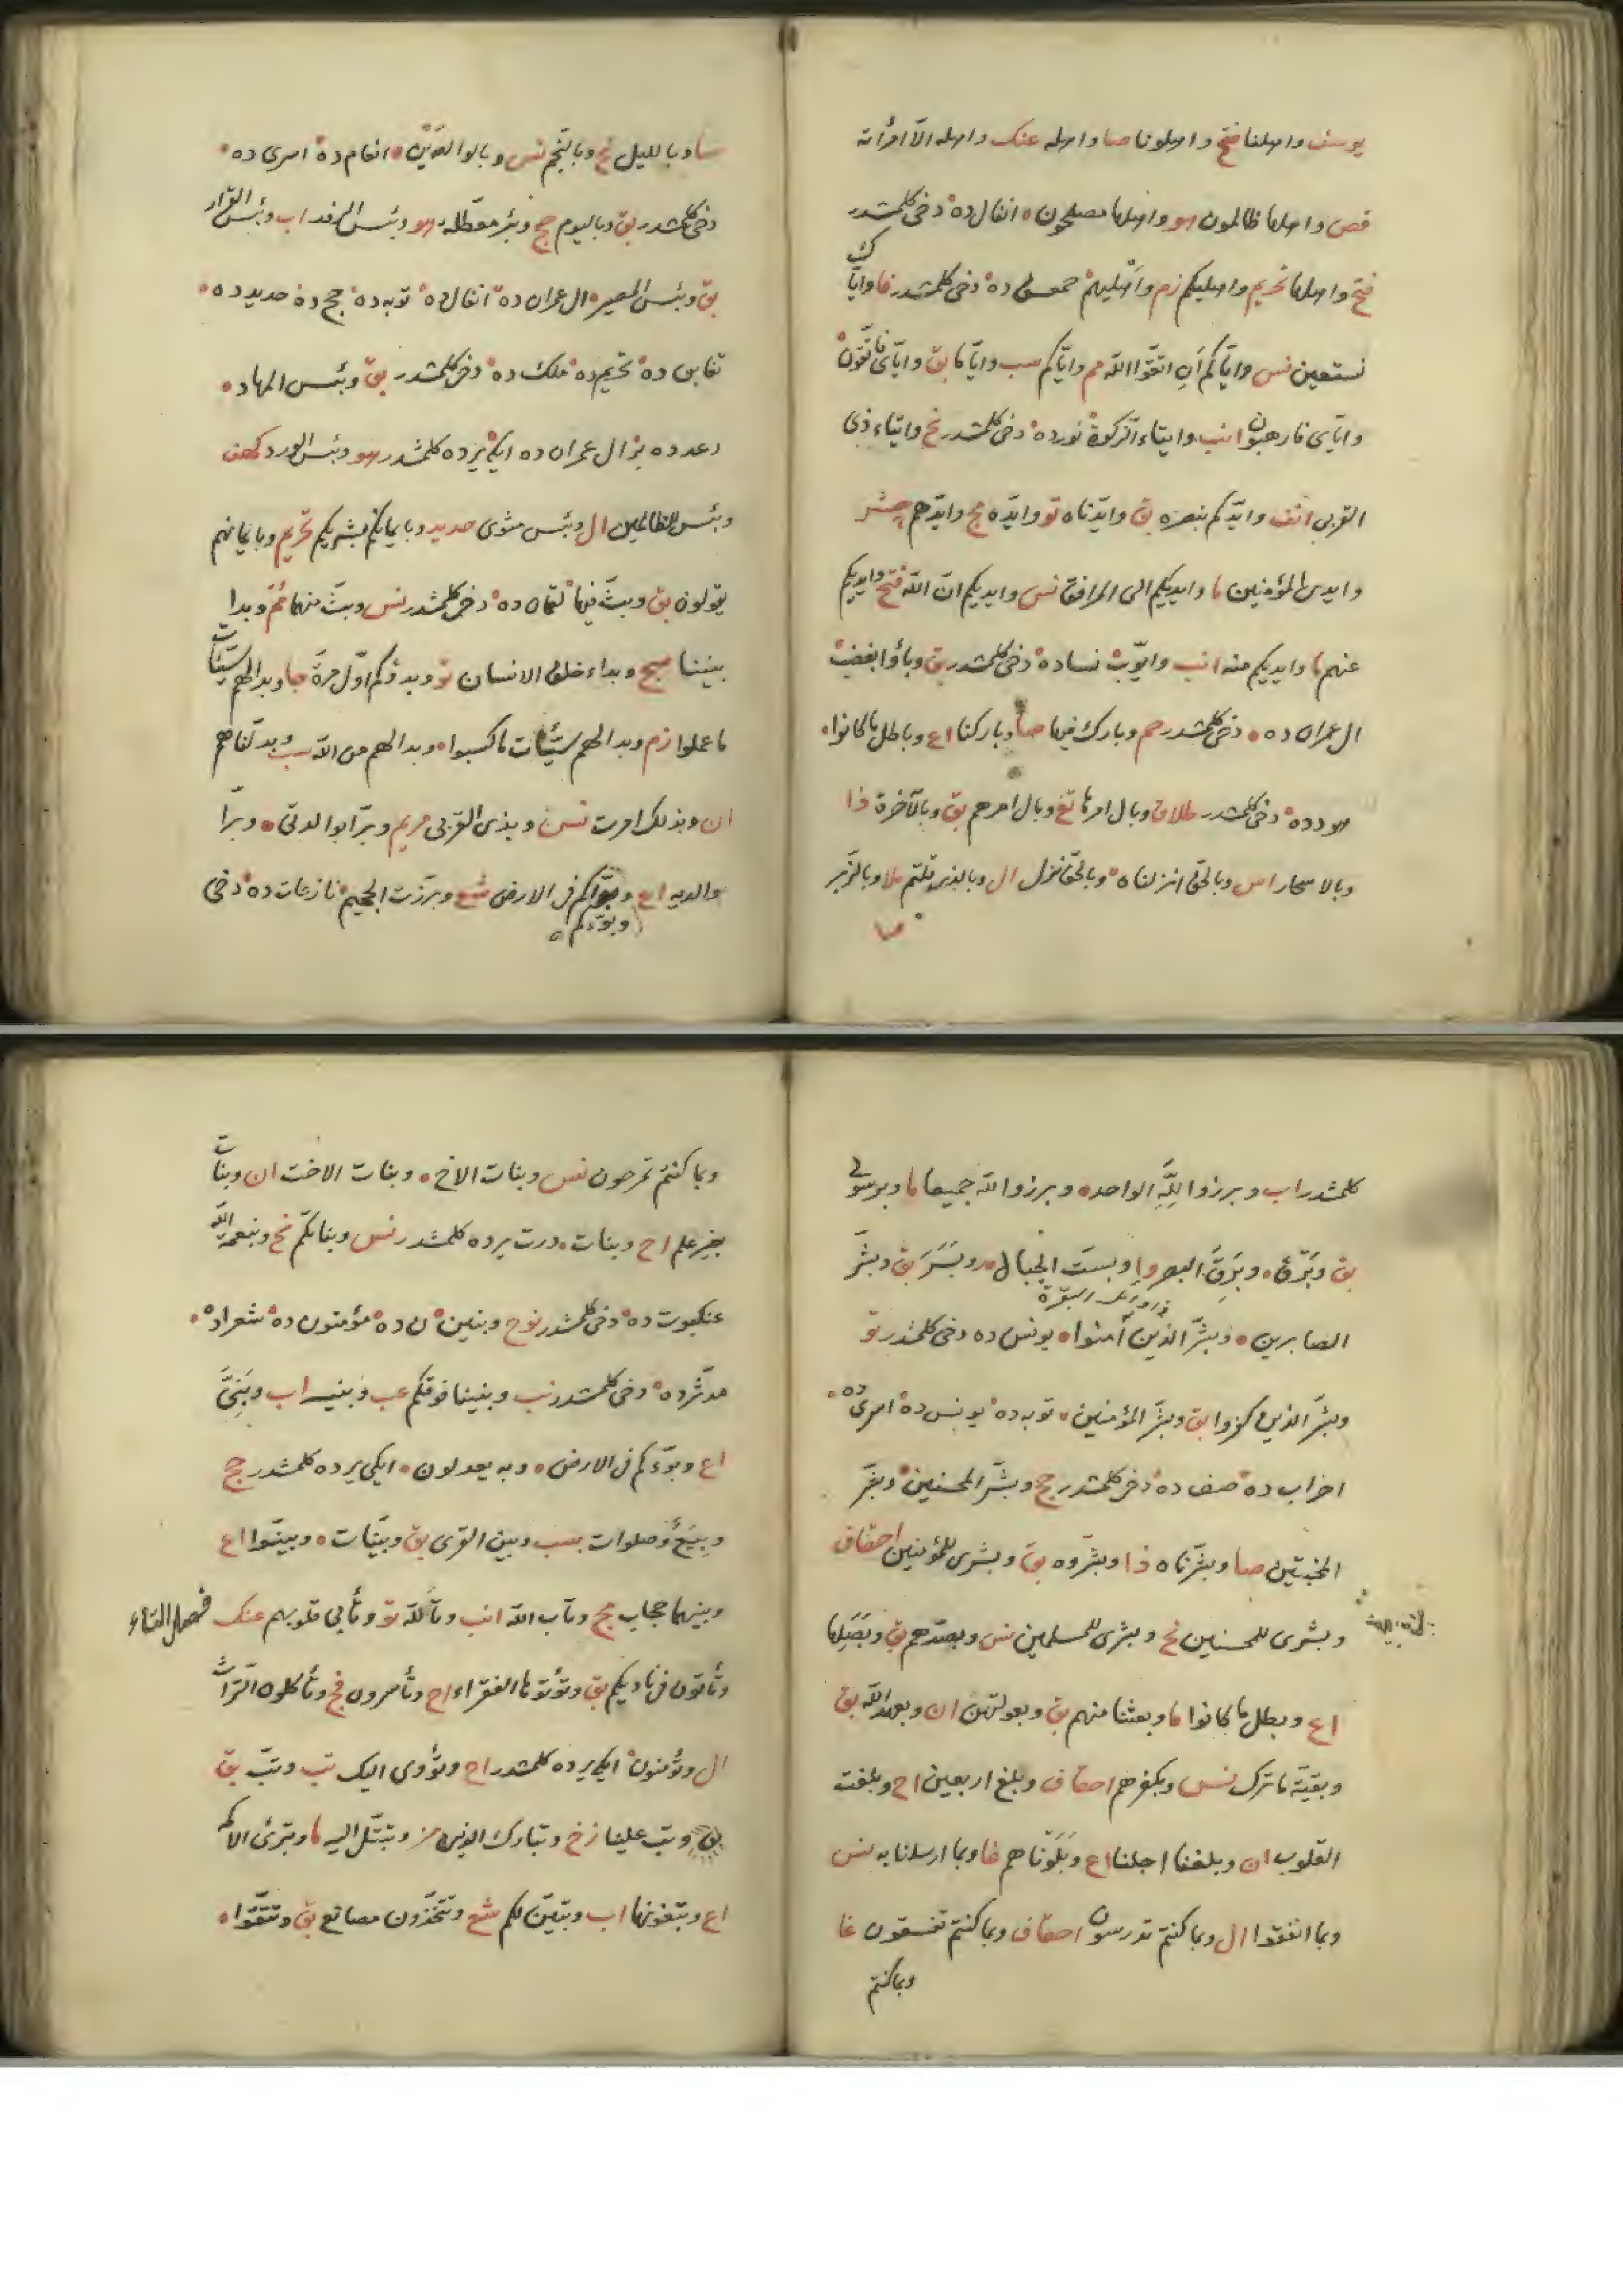 يوسف واهلنا فتح واهلونا صا واهله عنك واهله الّا امرأته
قص واهلها ظالمون هو واهلها مصلحون انفال ده دخى كلمشدر
فتح واهلها تحريم واهليكم زم واَهْليهم حمعسق ده دخى كلمشدر فا واياك
نستعين نس واياكم أن اتقوا الله مم واياكم سب وايّاكا بق وايّاى فاتّقون
وايّاى فارهبون انب وايتاء الزكوة نورده دخى كلمشدر نح وايتاء ذى
القربى انف وايّدكم بنصره بق وايّدناه تو وايّده مج وايّدهم حشر
وايدى المؤمنين ما وايديكم الى المرافق نس وايديكم انّ الله فتح وايديكم
عنهم ما وايديكم منه انب وايّوب نساده دخى كلمشدر بق وباؤا بغضب
ال عمران ده دخى كلمشدر حم وبارك فيها صا وباركنا اع وباطل ما كانوا
هود ده دخى كلمشدر طلاق وبال امرها تغ وبال امرهم بق وبالآخرة ذا
وبالاسحار اس وبالحقّ انزلناه وبالحقّ نزل ال وبالذى قلتم ملا وبالزّبر
سا وبالليل نح وبالنّجم نس وبالوالدين انعام ده اسرى ده
دخى كلمشدر بق وباليوم حج وبئر معطّلة هو وبئس الرفد اب وبئس القرار
بق وبئس المصير ال عمران ده انفال ده توبه ده حج ده حديد ده
تغابن ده تحريم ده ملك ده دخى كلمشدر بق وبئس المهاد
رعد ده بز ال عمران ده ايكى يرده كلمشدر هو وبئس الورد كهف
وبئس للظالمين ال وبئس مثوى حديد وبايمانكم بشريكم تحريم وبايمانهم
يقولون بق وبثّ فيها لقمان ده دخى كلمشدر نس وبثّ منهما مم وبدا
بيننا سج وبداء خلق الانسان تو وبدؤكم اوّل مرة جا وبدا لهم سيّئات
ما عملوا زم وبدا لهم سيّئات ما كسبوا وبدا لهم من الله سب وبدّلناهم
ان وبذلك امرت نس وبذى القربى مريم وبرّا بوالدتى وبرّا
والديه اع وبوّاكم فى الارض شع وبرّزت الجحيم نازعات ده دخى
وبوّءكم
كلمشدر اب وبرزوا لِلّهِ الواحد وبرزوا لله جميعا ما وبرسولى
بق وبَرْق وبَرِقَ البصر وا وبستِ الجبال مد وبَسَرَ بق وبشّر
الصابرين وبشّر الذين آمنوا يونس ده دخى كلمشدر تو
وبشّر الذين كفروا بق وبشّر المؤمنين توبه ده يونس ده اسرى ده
احزاب ده صف ده دخى كلمشدر حج وبشّر المحسنين وبشّر
المخبتين صا وبشّرناه ذا وبشّروه بق وبشرى للمؤمنين احقاف
وبشرى للمحسنين نح وبشرى للمسلمين نس وبصدّهم بق وبَصَلِها
اع وبطل ما كانوا ما وبعثنا منهم بق وبعولتهنّ ان وبعهد الله بق
وبقيّة مما ترك نس وبكفرهم احقاف وبلغ اربعين اح وبلغت
القلوب ان وبلغنا اجلنا اع وبَلَوناهم غا وبما ارسلنا به نس
وبما انفقوا ال وبما كنتم تدرسون احقاف وبما كنتم تفسقون غا
وبما كنتم
وبما كنتم تمرحون نس وبنات الاخ وبنات الاخت ان وبنات
بغير علم اح وبنات درت يرده كلمشدر نس وبناتكم نح وبنعمة الله
عنكبوت ده دخى كلمشدر نوح وبنين ن ده مؤمنون ده شعراده
مدثّر ده دخى كلمشدر نب وبنينا فوقكم عب وبنيه اب وبَنِىَّ
اع وبوّءكم فى الارض وبه يعدلون ايكى يرده كلمشدر حج
وبِيَعٌ وصلوات سب وبين القرى بق وبيّنات وبيّنوا اع
وبينهما حجاب مج وتاب الله انب وتاللّه تو وتأبى قلوبهم عنك فصل التاء
وتأتون فى ناديكم بق وتؤتوها الفقراء اح وتأسرون فج وتأكلون التّراث
ال وتؤمنون ايكى يرده كلمشدر اح وتؤوى اليك تب وتبّ بق
وتب علينا زخ وتبارك الذى مز وتبتّل اليه ما وتبرئ الاكمه
اع وتبغونها اب وتبيّن لكم شع وتتّخذون مصانع بق وتتّقوا